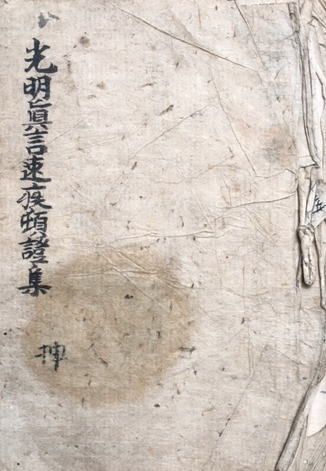 光明眞言速疾頓證集
坤